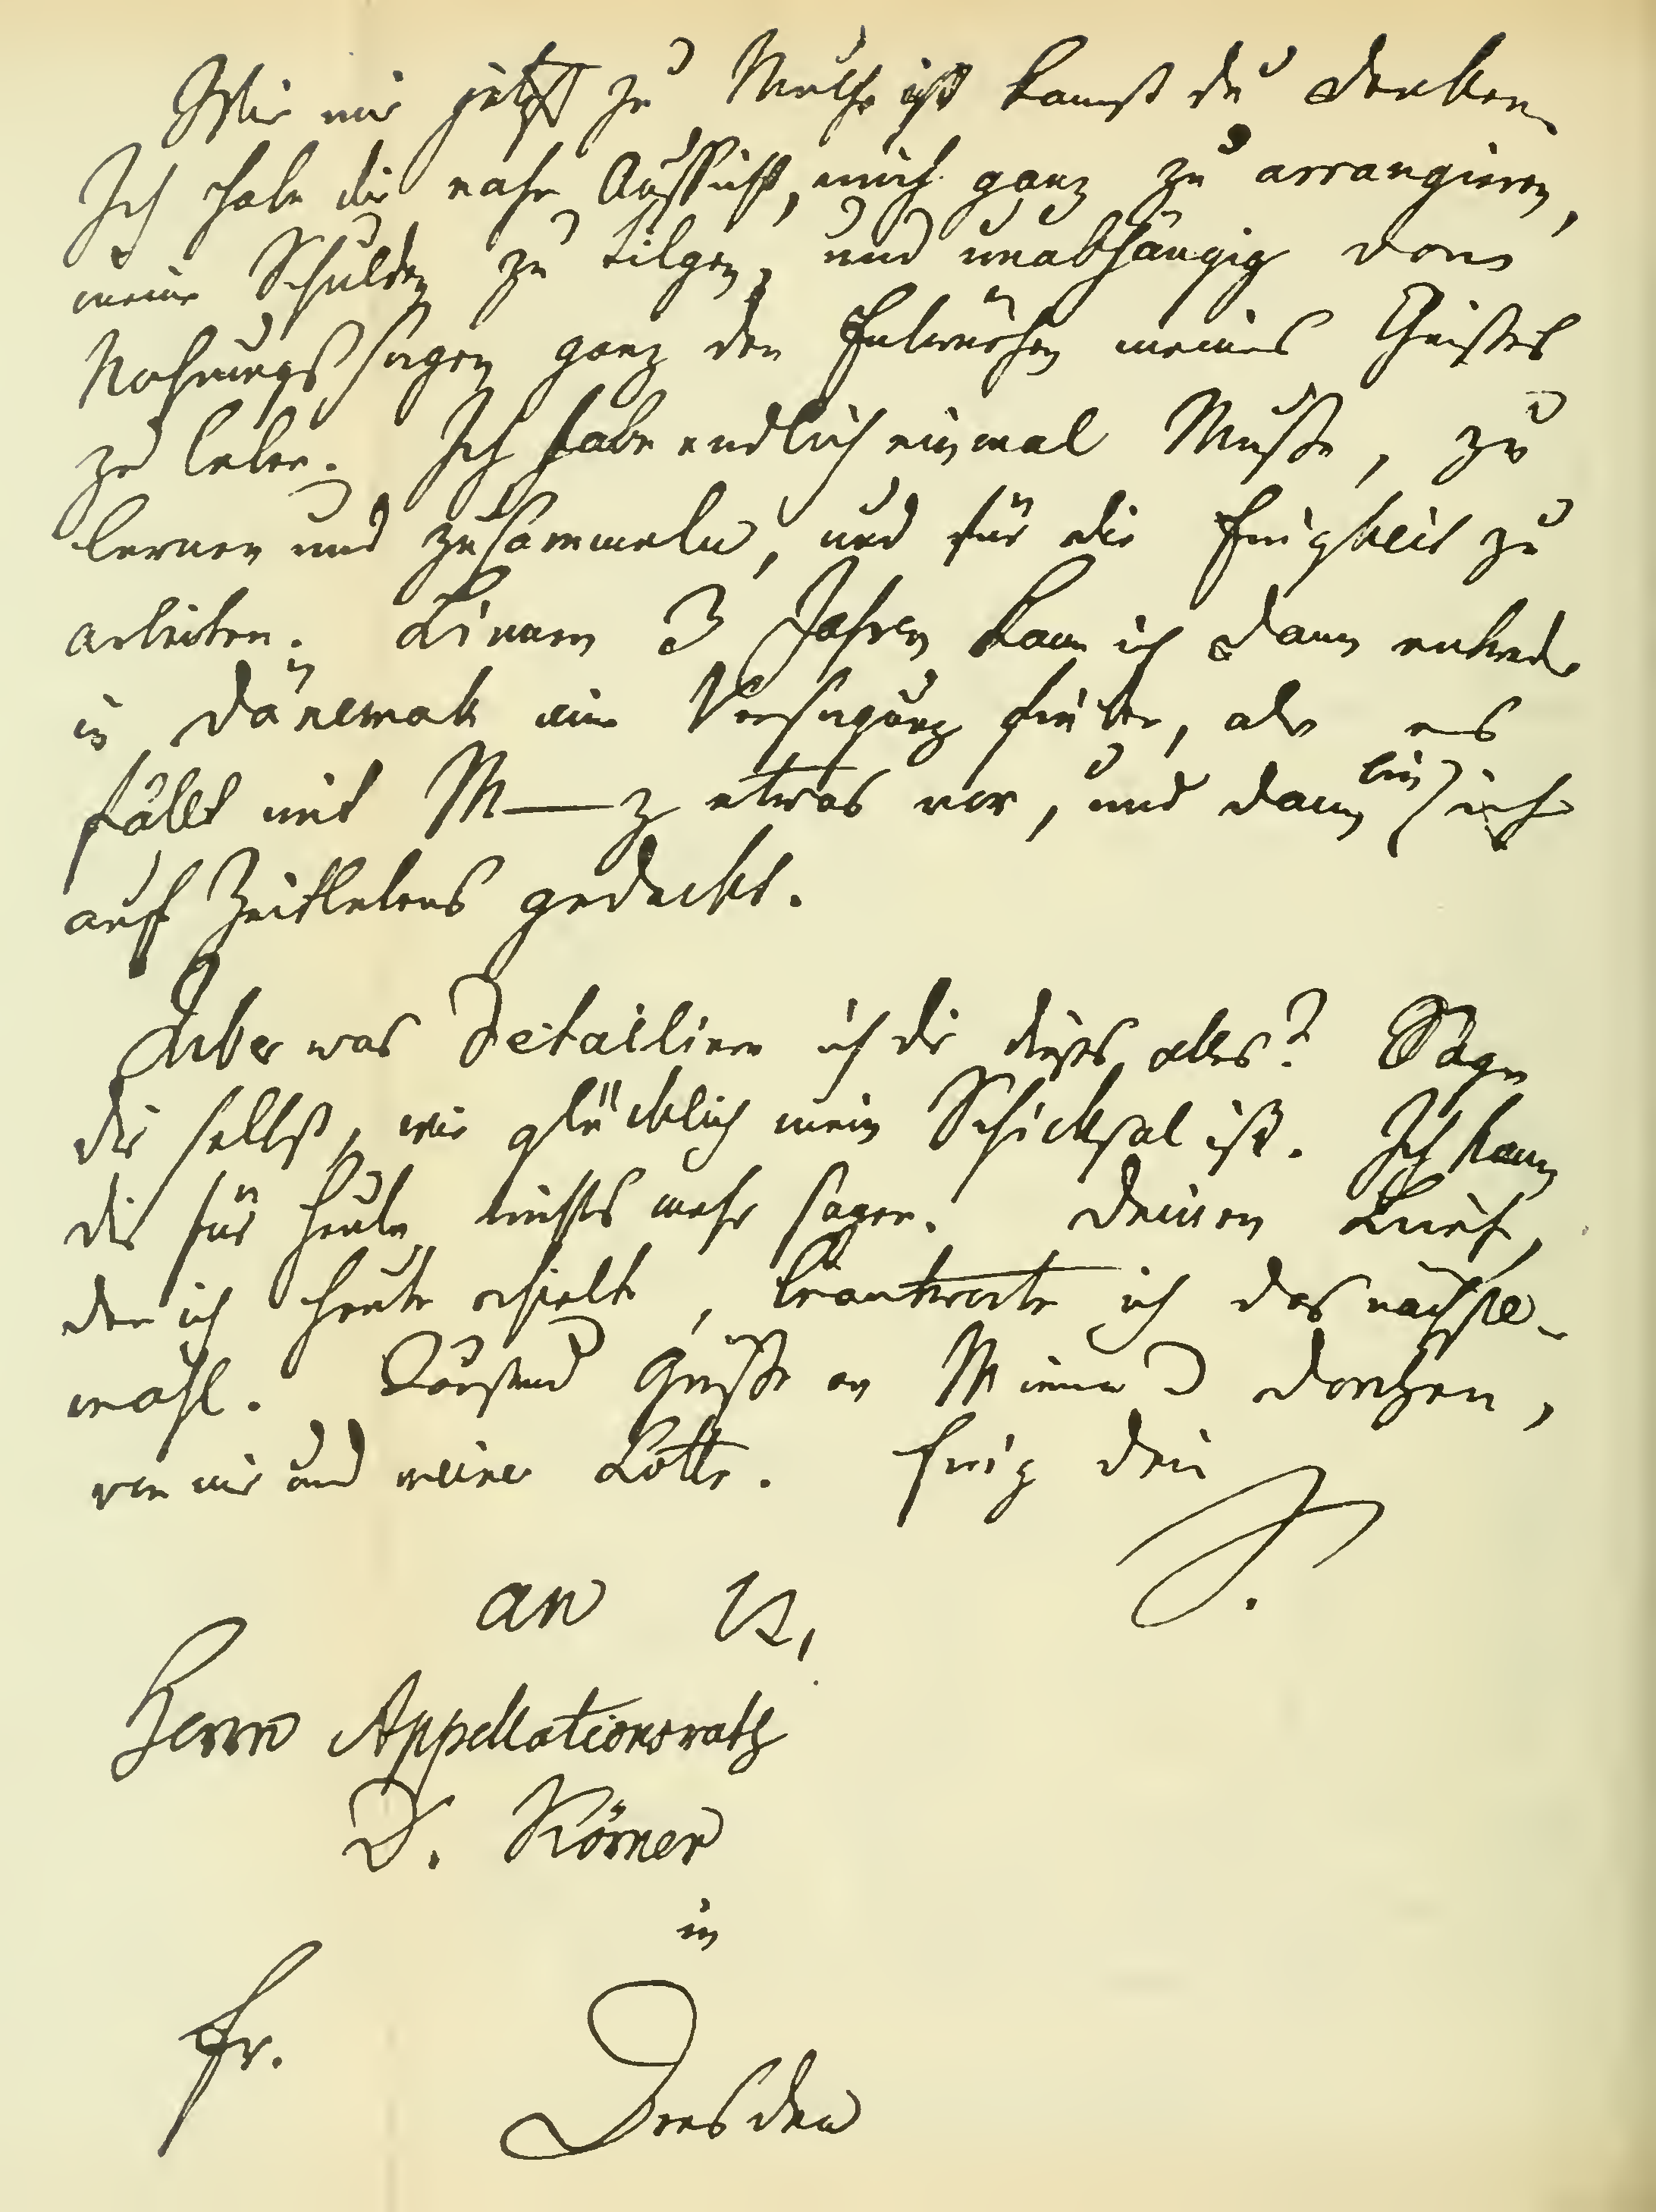 Wie mir jetzt zu Muthe ist kannst du denken.
Ich habe die nahe Aussicht, mich ganz zu arrangieren,
meine Schulden zu tilgen, und unabhängig von
Nahrungssorgen ganz den Entwürfen meines Geistes
zu leben. Ich habe endlich einmal Muße, zu
lernen und zu sammeln, und für die Ewigkeit zu
arbeiten. Binnen 3 Jahren kann ich dann entwed
in Dänemark eine Versorgung finden, oder es
fällt mit M—z etwas vor, und dann bin ich
auf Zeitlebens gedeckt.
Aber was detailliere ich dir dieses alles? Sage
dir selbst, wie glücklich mein Schicksal ist. Ich kann
dir für heute nichts mehr sagen. Deinen Brief,
den ich heute erhielt, beantworte ich das nächste-
mahl. Tausend Grüße an Minna u Dorchen,
von mir und meiner Lotte. Ewig dein
S.
an
Herrn Appellationsrath
D. Körner
in
fr. Dresden